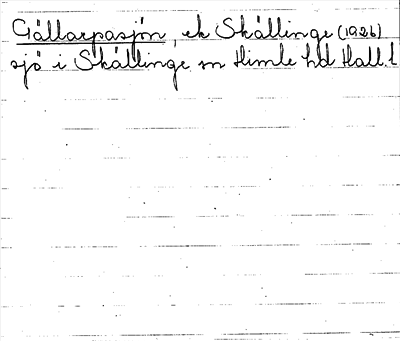 Gållarpasjön, ek Skällinge (1926)
sjö i Skällinge sn Himle hd Hall. l